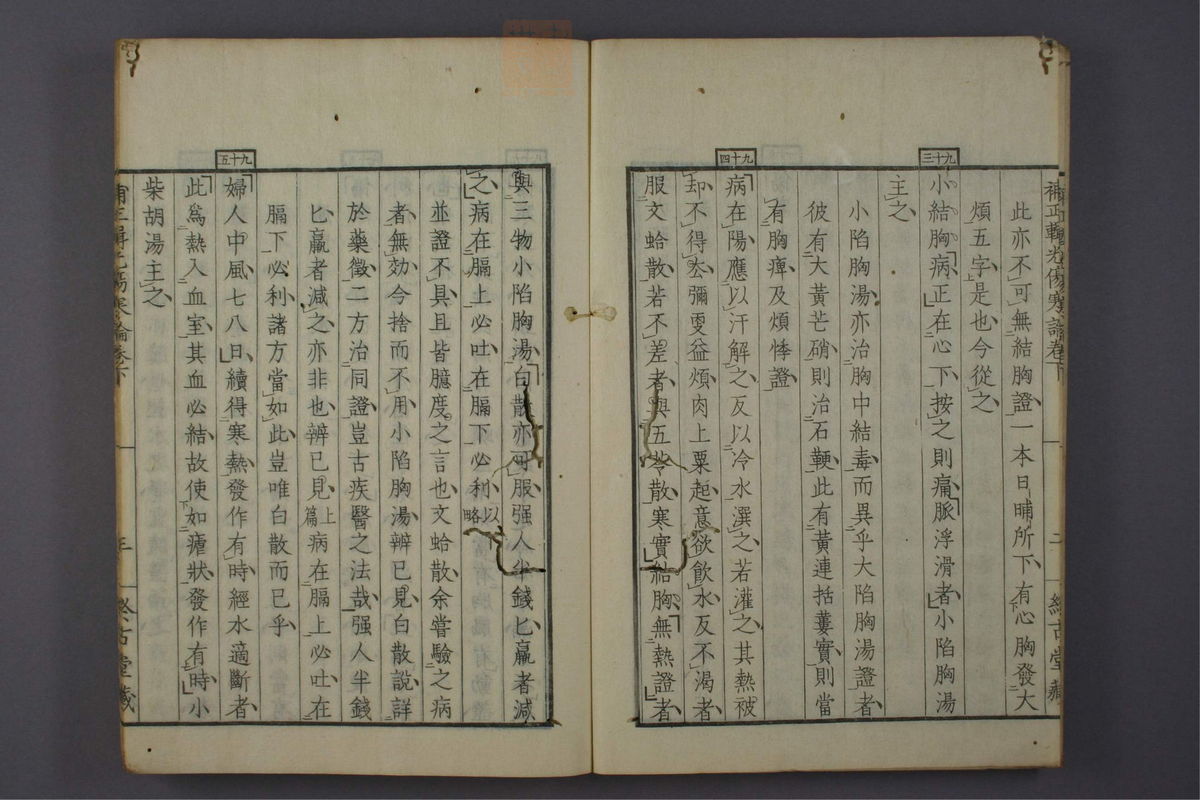 補正輯光傷寒論卷下 二 經古堂藏
此亦不可無結胸證一本日晡所下有心胸發大
煩五字是也今從之
九十三
小結胸病正在心下按之則痛脈浮滑者小陷胸湯
主之
小陷胸湯亦治胸中結毒而異乎大陷胸湯證者
彼有大黃芒硝則治石鞕此有黃連括蔞實則當
有胸痺及煩悸證
九十四
病在陽應以汗解之反以冷水潠之若灌之其熱被
却不得去彌更益煩肉上粟起意欲飲水反不渴者
服文蛤散若不差者與五苓散寒實結胸無熱證者
與三物小陷胸湯白散亦可服强人半錢匕羸者減
之病在膈上必吐在膈下必利以略
並證不具且皆臆度之言也文蛤散余嘗驗之病
者無効今捨而不用小陷胸湯辨已見白散說詳
於藥徵二方治同證豈古疾醫之法哉强人半錢
匕羸者減之亦非也辨已見上篇病在膈上必吐在
膈下必利諸方當如此豈唯白散而已乎
九十五
婦人中風七八日續得寒熱發作有時經水適斷者
此爲熱入血室其血必結故使如瘧狀發作有時小
柴胡湯主之